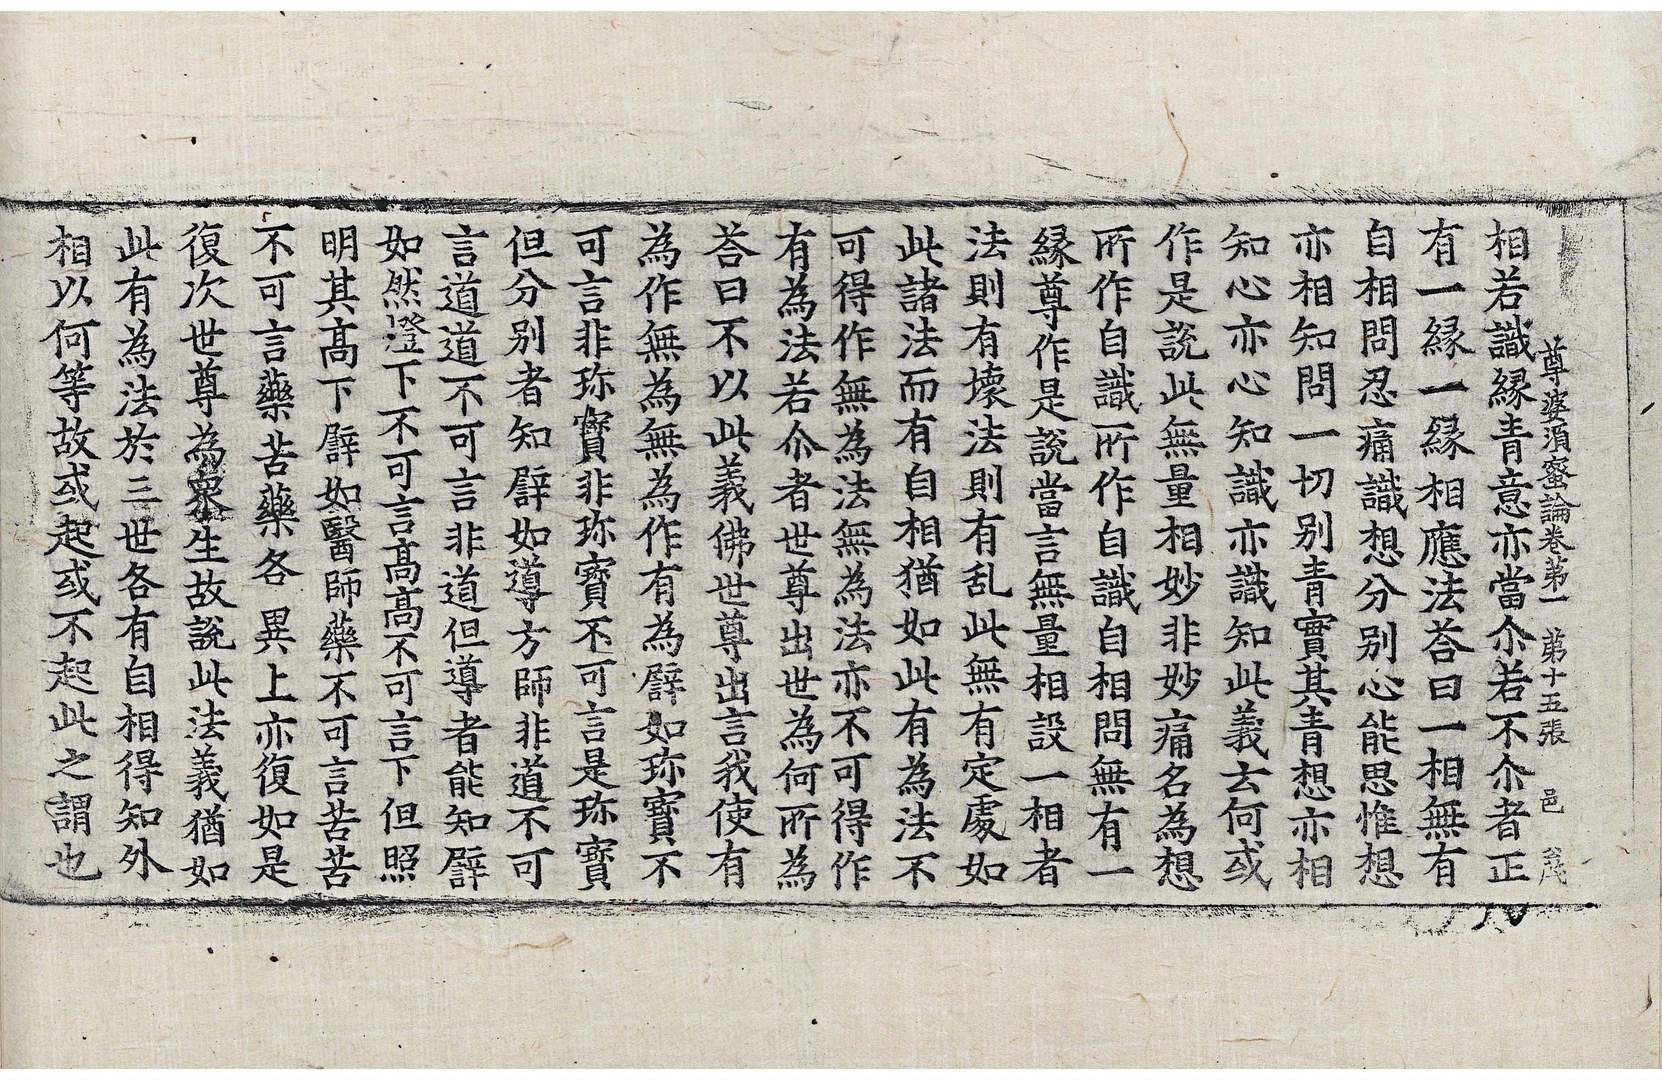 尊婆須蜜論卷第一　第十五張　邑
相若識縁青意亦當尒若不尒者正
有一縁一縁相應法荅曰一相無有
自相問忍痛識想分别心能思惟想
亦相知問一切别青實其青想亦相
知心亦心知識亦識知此義云何或
作是說此無量相妙非妙痛名為想
所作自識所作自識自相問無有一
縁尊作是說當言無量相設一相者
法則有壞法則有乱此無有定處如
此諸法而有自相猶如此有為法不
可得作無為法無為法亦不可得作
有為法若尒者世尊出世為何所為
荅曰不以此義佛世尊出言我使有
為作無為無為作有為譬如珎寶不
可言非珎寶非珎寶不可言是珎寶
但分别者知譬如導方師非道不可
言道道不可言非道但導者能知譬
如然燈下不可言髙髙不可言下但照
明其髙下譬如醫師藥不可言苦苦
不可言藥苦藥各異上亦復如是
復次世尊為衆生故說此法義猶如
此有為法於三世各有自相得知外
相以何等故或起或不起此之謂也